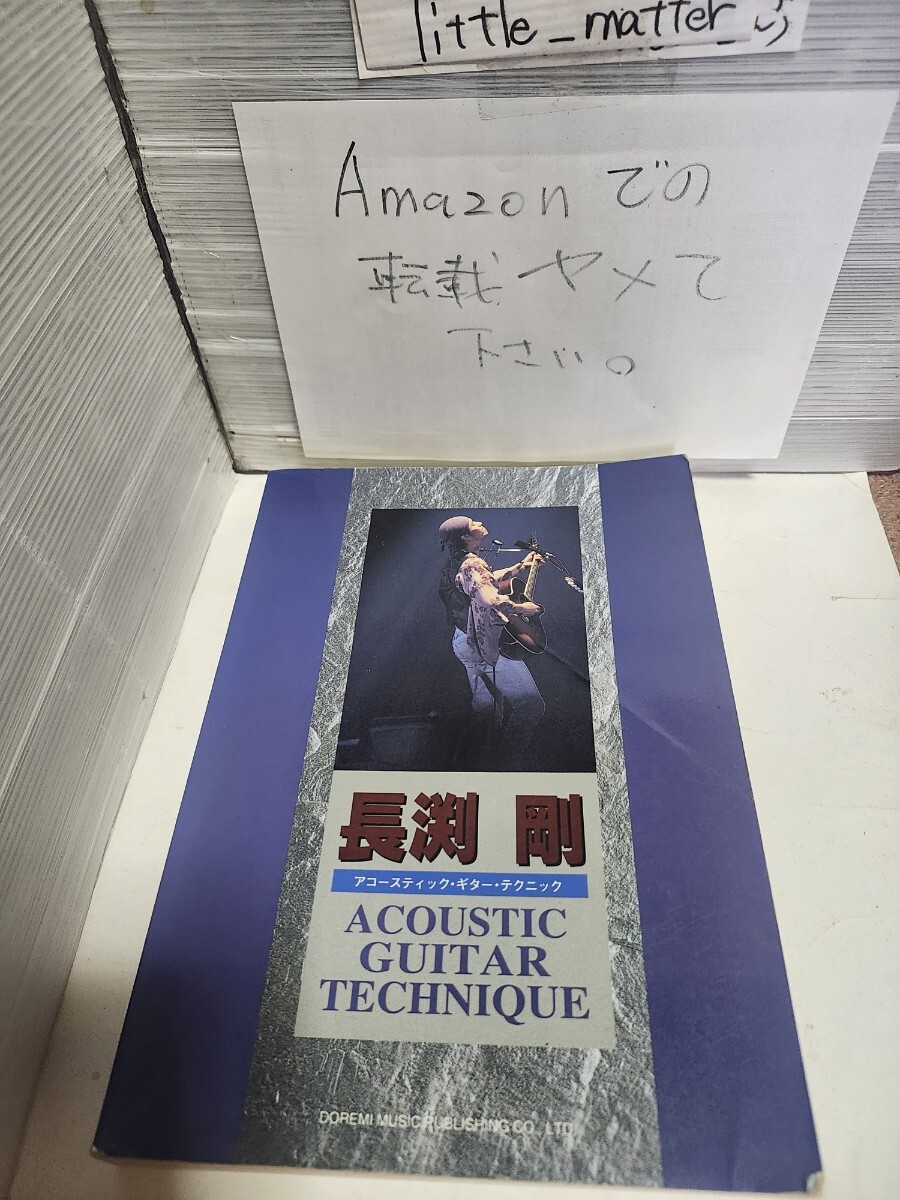 little_matter
Amazonでの
転載ヤメて
下さい。
長渕 剛
アコースティック・ギター・テクニック
ACOUSTIC
GUITAR
TECHNIQUE
DOREMI MUSIC PUBLISHING CO., LTD.